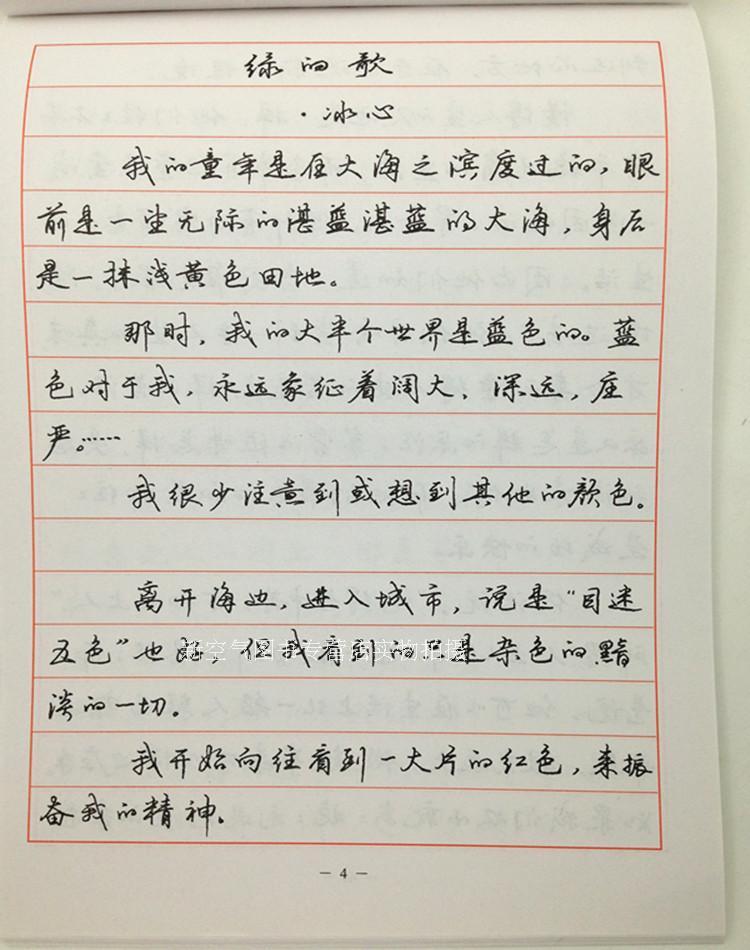 绿的歌
·冰心
我的童年是在大海之滨度过的,眼
前是一望无际的湛蓝湛蓝的大海,身后
是一抹浅黄色田地。
那时,我的大半个世界是蓝色的。蓝
色对于我,永远象征着阔大,深远,庄
严。……
我很少注意到或想到其他的颜色。
离开海边,进入城市,说是“目迷
五色”也好,但我看到的只是杂色的黯
淡的一切。
我开始向往看到一大片的红色,来振
奋我的精神。
新空气图书专营店实物拍摄
— 4 —